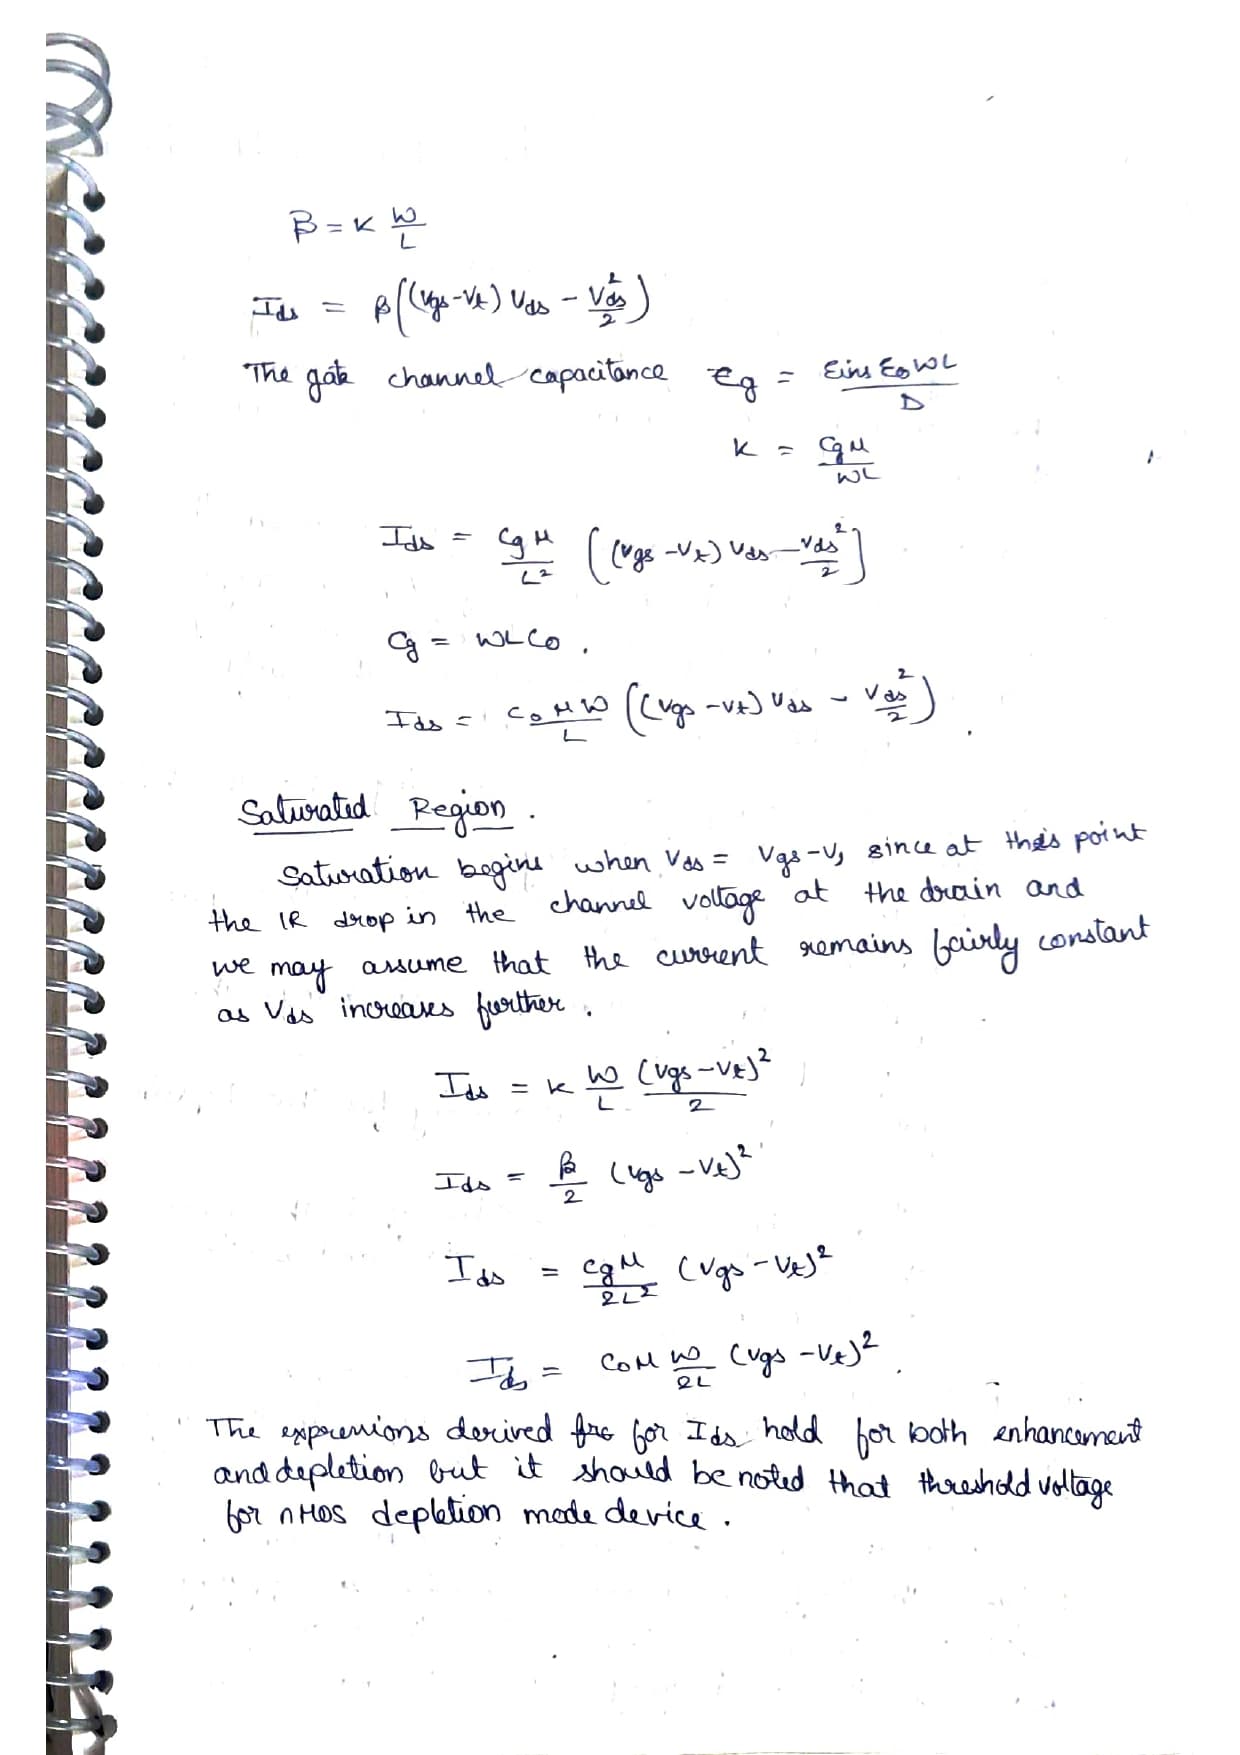 β = K W/L
Ids = β((Vgs-Vt) Vds - Vds²/2)
The gate channel capacitance Cg = Eins E0 WL/D
K = Cgμ/WL
Ids = Cgμ/L² ((Vgs-Vt) Vds - Vds²/2]
Cg = WLC0.
Ids = C0μW/L ((Vgs-Vt) Vds - Vds²/2).
Saturated Region.
Saturation begins when Vds = Vgs-V, since at this point
the IR drop in the channel voltage at the drain and
we may assume that the current remains fairly constant
as Vds increases further.
Ids = K W/L (Vgs-Vt)²/2
Ids = β/2 (Vgs-Vt)²
Ids = Cgμ/2L² (Vgs-Vt)²
Ids = C0μ W/2L (Vgs-Vt)².
The expressions derived for Ids hold for both enhancement
and depletion but it should be noted that threshold voltage
for nMOS depletion mode device.